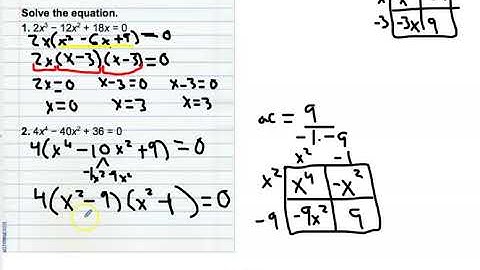 Solve the equation.
1. 2x³ – 12x² + 18x = 0
2x(x² - 6x + 9) = 0
2x(x-3)(x-3) = 0
2x = 0 x-3 = 0 x-3 = 0
x = 0 x = 3 x = 3
2. 4x⁴ – 40x² + 36 = 0
4(x⁴ - 10x² + 9) = 0
-1x² -9x²
4(x² - 9)(x² - 1) = 0
-3 -3x 9
ac = 9
-1 · -9
x² -1
x² x⁴ -x²
-9 -9x² 9